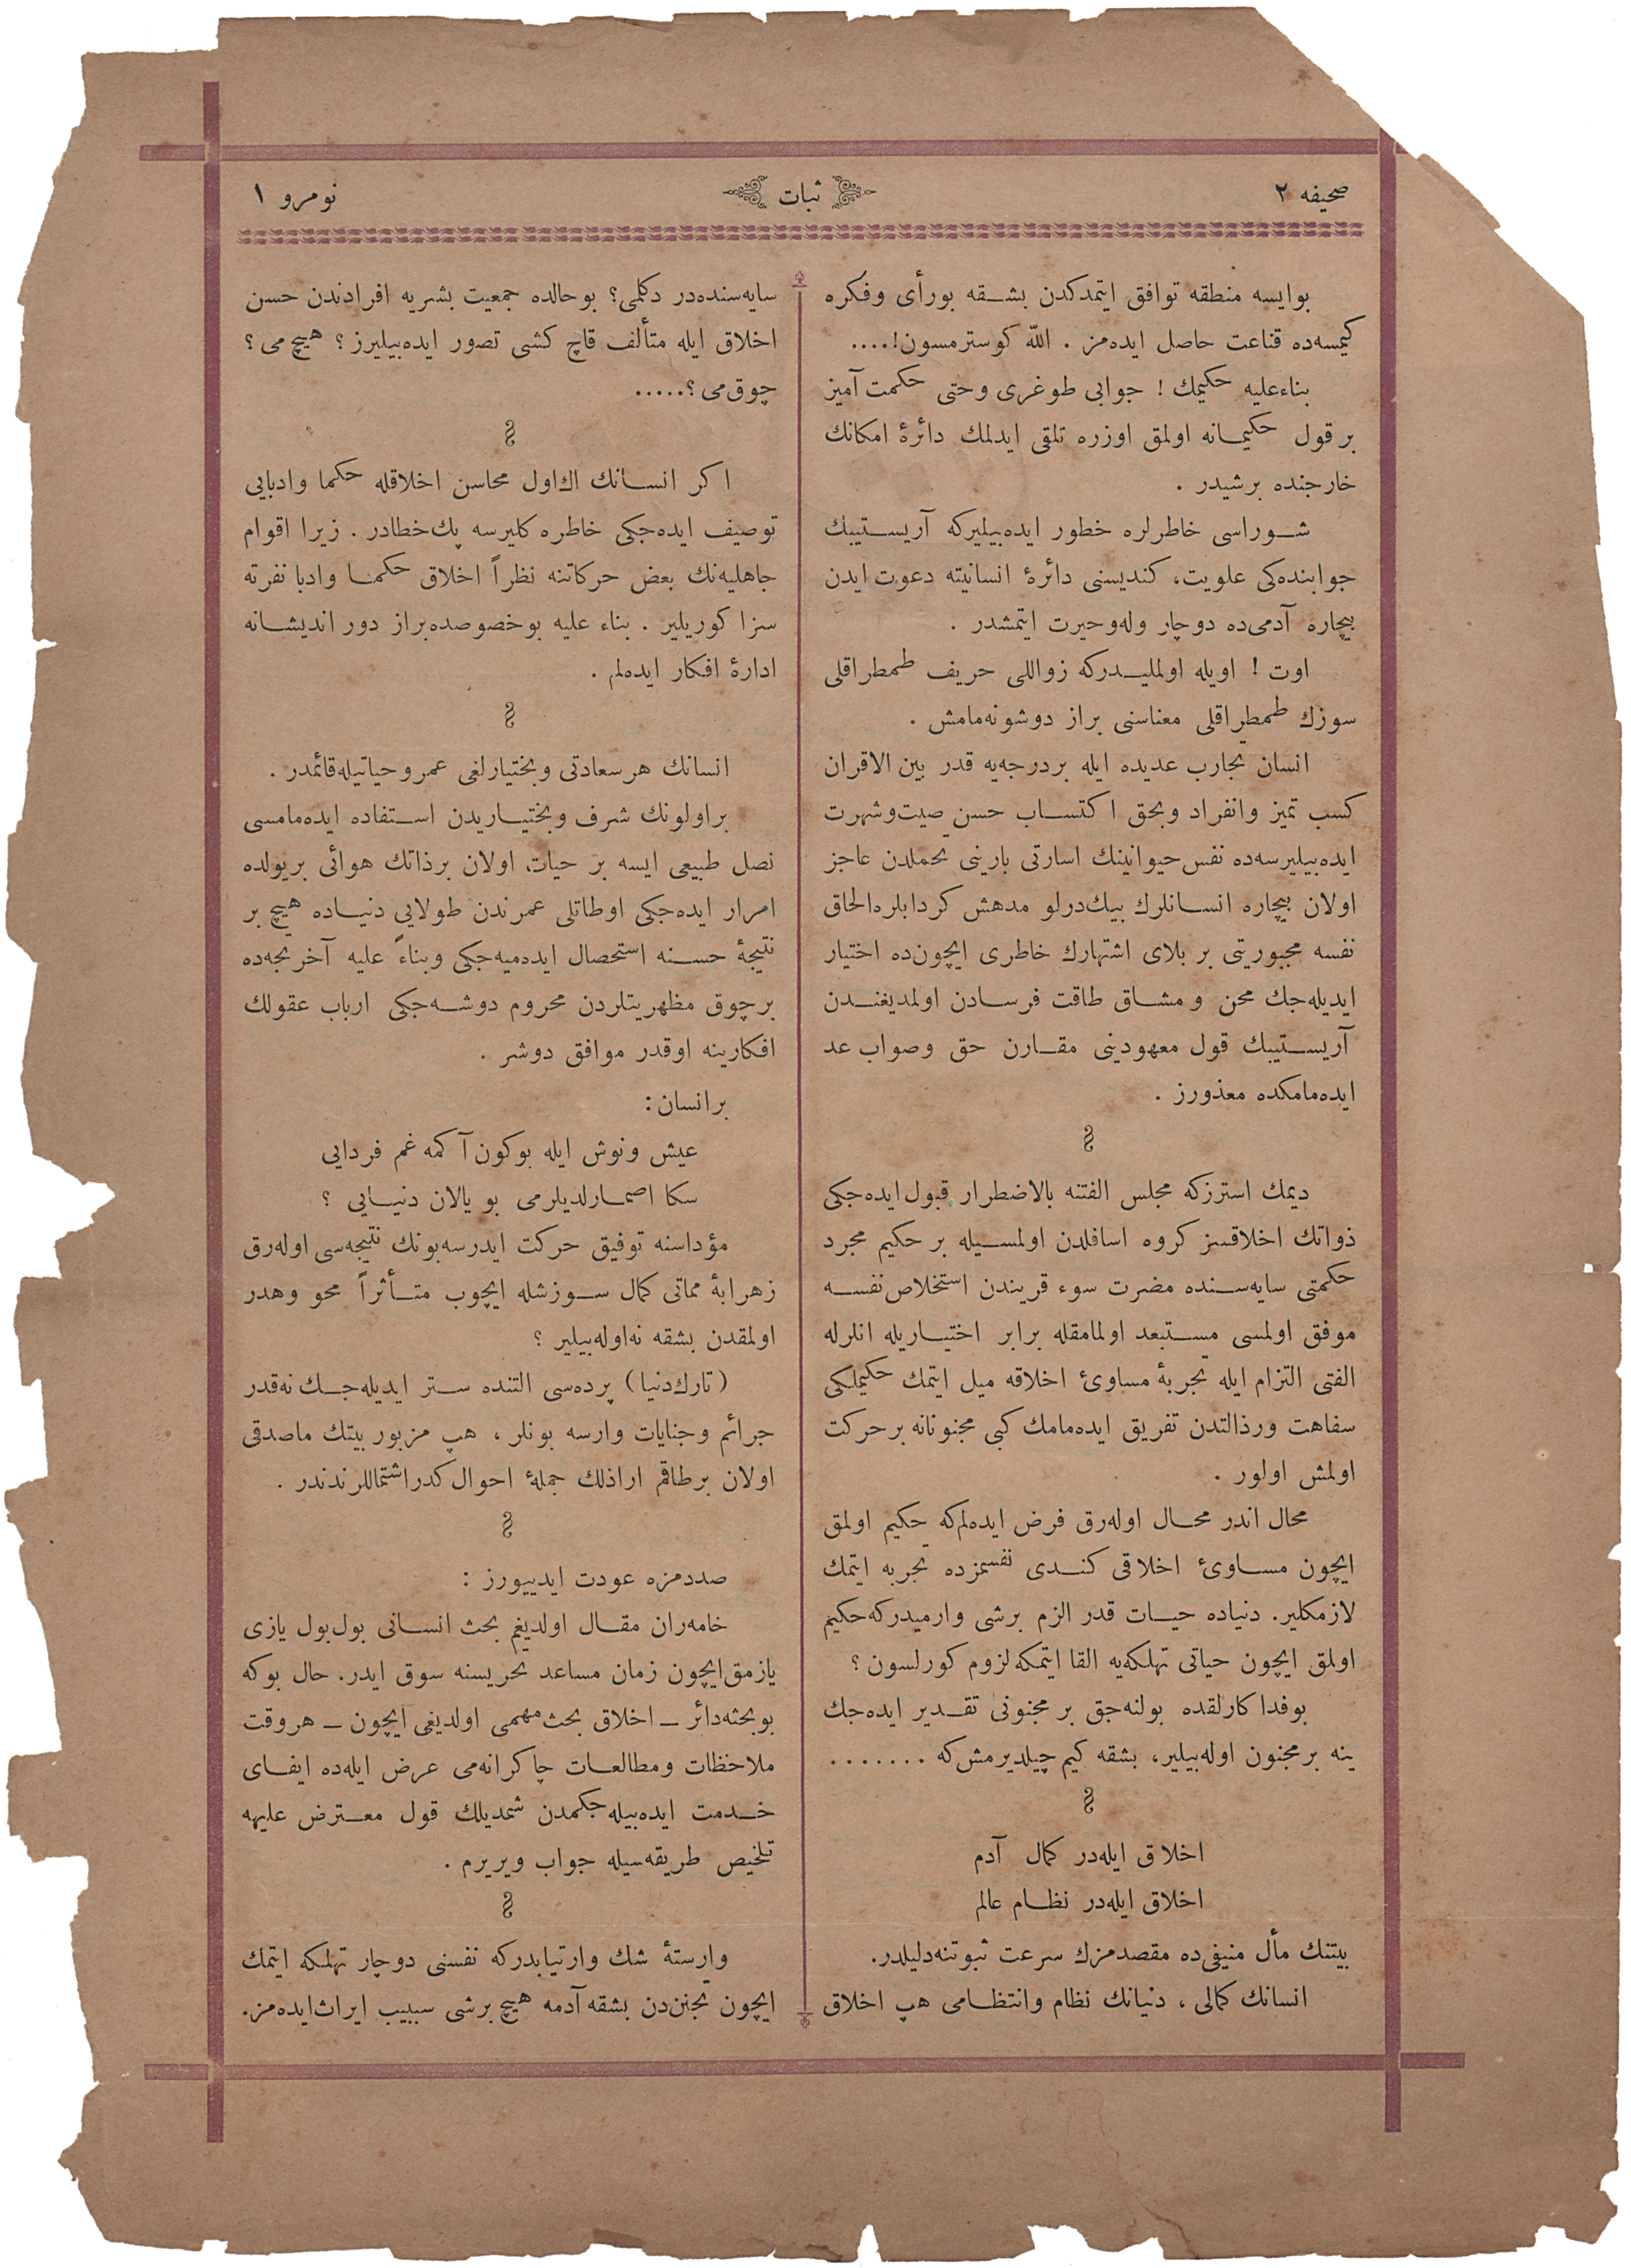 صحیفه ٢
ثبات
نومرو ١
بوایسه منطقه توافق ایتمدکدن بشقه بورأی وفکره
کیمسه‌ده قناعت حاصل ایده‌مز . الله کوسترمسون!....
بناءعلیه حکیمك ! جوابی طوغری وحتی حکمت آمیز
بر قول حکیمانه اولمق اوزره تلقی ایدلمك دائرهٔ امکانك
خارجنده برشیدر .
شوراسی خاطرلره خطور ایده‌بیلیرکه آریستیپك
جوابنده‌کی علویت، کندیسنی دائرهٔ انسانیته دعوت ایدن
بیچاره آدمی‌ده دوچار وله‌وحیرت ایتمشدر .
اوت ! اویله اولملیدرکه زواللی حریف طمطراقلی
سوزك طمطراقلی معناسنی براز دوشونه‌مامش .
انسان تجارب عدیده ایله بردرجه‌یه قدر بین الاقران
کسب تمیز وانفراد وبحق اکتساب حسن صیت‌وشهرت
ایده‌بیلیرسه‌ده نفس حیوانینك اسارتی بارینی تحملدن عاجز
اولان بیچاره انسانلرك بیك‌درلو مدهش کردابلره‌الحاق
نفسه مجبوریتی بر بلای اشتهارك خاطری ایچون‌ده اختیار
ایدیله‌جك محن ومشاق طاقت فرسادن اولمدیغندن
آریستیپك قول معهودینی مقارن حق وصواب عد
ایده‌مامکده معذورز .
دیمك استرزکه مجلس الفتنه بالاضطرار قبول ایده‌جکی
ذواتك اخلاقسز کروه اسافلدن اولمسیله بر حکیم مجرد
حکمتی سایه‌سنده مضرت سوء قریندن استخلاص نفسه
موفق اولمسی مستبعد اولمامقله برابر اختیاریله انلرله
الفتی التزام ایله تجربهٔ مساوئ اخلاقه میل ایتمك حکیملکی
سفاهت ورذالتدن تفریق ایده‌مامك کبی مجنونانه برحرکت
اولمش اولور .
محال اندر محال اوله‌رق فرض ایده‌لم‌که حکیم اولمق
ایچون مساوئ اخلاقی کندی نفسمزده تجربه ایتمك
لازمکلیر. دنیاده حیات قدر الزم برشی وارمیدرکه‌حکیم
اولمق ایچون حیاتی تهلکه‌یه القا ایتمکه‌لزوم کورلسون ؟
بوفداکارلقده بولنه‌جق بر مجنونی تقدیر ایده‌جك
ینه برمجنون اوله‌بیلیر، بشقه کیم چیلدیرمش‌که .......
اخلاق ایله‌در کمال آدم
اخلاق ایله‌در نظام عالم
بیتنك مأل منیفی‌ده مقصدمزك سرعت ثبوتنه‌دلیلدر.
انسانك کمالی ، دنیانك نظام وانتظامی هپ اخلاق
سایه‌سنده‌در دکلمی؟ بوحالده جمعیت بشریه افرادندن حسن
اخلاق ایله متألف قاچ کشی تصور ایده‌بیلیرز؟ هیچ می؟
چوق‌می؟.....
اکر انسانك اك‌اول محاسن اخلاقله حکما وادبایی
توصیف ایده‌جکی خاطره کلیرسه پك‌خطادر . زیرا اقوام
جاهلیه‌نك بعض حرکاتنه نظراً اخلاق حکما وادبا نفرته
سزا کوریلیر . بناء علیه بوخصوصده‌براز دور اندیشانه
ادارهٔ افکار ایده‌لم .
انسانك هرسعادتی وبختیارلغی عمر وحیاتیله‌قائمدر .
براولونك شرف وبختیاریدن استفاده ایده‌مامسی
نصل طبیعی ایسه بر حیات اولان برذاتك هوائی بریولده
امرار ایده‌جکی اوطاتلی عمرندن طولایی دنیاده هیچ بر
نتیجهٔ حسنه استحصال ایده‌میه‌جکی وبناءً علیه آخرتجه‌ده
برچوق مظهریتلردن محروم دوشه‌جکی ارباب عقولك
افکارینه اوقدر موافق دوشر .
برانسان:
عیش ونوش ایله بوکون آکمه غم فردایی
سکا اصمارلدیلرمی بو یالان دنیایی ؟
مؤداسنه توفیق حرکت ایدرسه‌بونك نتیجه‌سی اوله‌رق
زهرابهٔ مماتی کمال سوزشله ایچوب متأثراً محو وهدر
اولمقدن بشقه نه‌اوله‌بیلیر ؟
(تارك‌دنیا) پرده‌سی التنده ستر ایدیله‌جك نه‌قدر
جرائم وجنایات وارسه بونلر ، هپ مزبور بیتك ماصدقی
اولان برطاقم اراذلك جملهٔ احوال کدراشتماللرندندر .
صددمزه عودت ایدییورز :
خامه‌ران مقال اولدیغم بحث انسانی بول‌بول یازی
یازمق‌ایچون زمان مساعد تحریسنه سوق ایدر. حال بوکه
بوبحثه‌دائر ـ اخلاق بحث مهمی اولدیغی ایچون ـ هروقت
ملاحظات ومطالعات چاکرانه‌می عرض ایله‌ده ایفای
خدمت ایده‌بیله‌جکمدن شمدیلك قول معترض علیهه
تلخیص طریقه‌سیله جواب ویریرم .
وارستهٔ شك وارتیابدرکه نفسنی دوچار تهلکه ایتمك
ایچون تجنن‌دن بشقه آدمه هیچ برشی سبیب ایراث‌ایده‌مز.